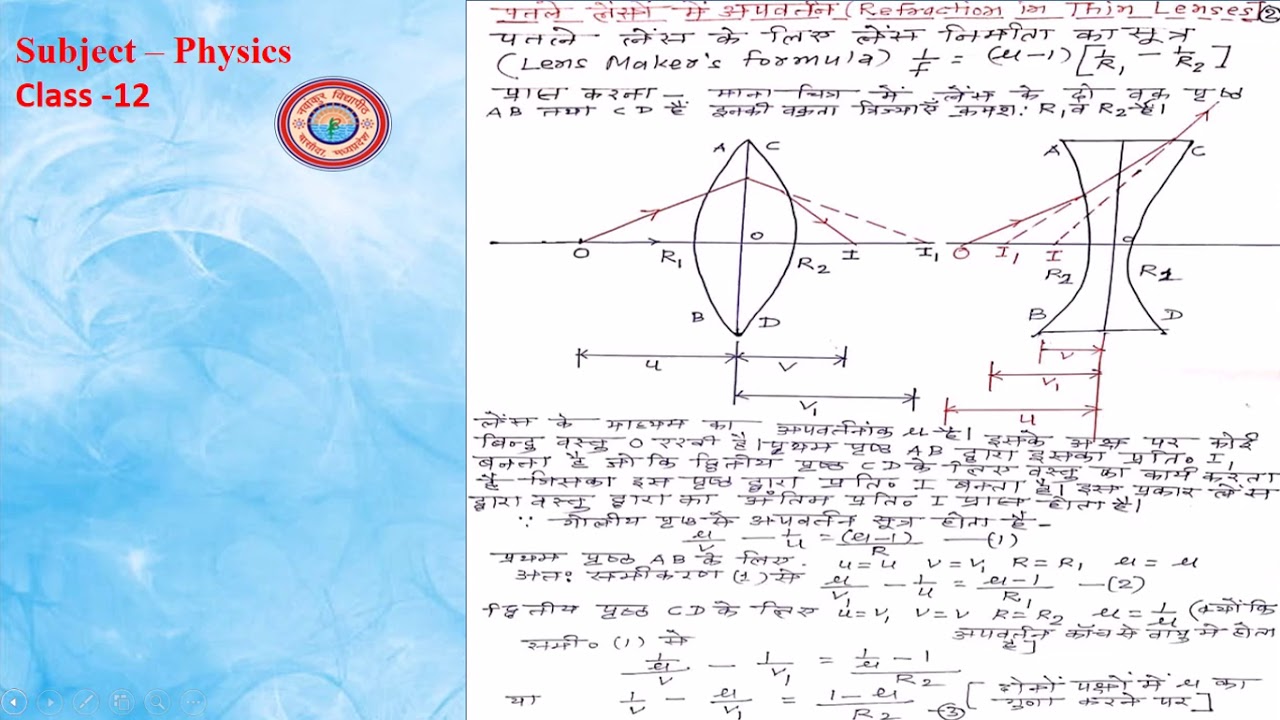 Subject – Physics
Class -12
नवांकुर विद्यापीठ
पतले लेंसों में अपवर्तन (Refraction in Thin Lenses) ②
पतले लेंस के लिए लेंस निर्माता का सूत्र
(Lens Maker's formula) 1/f = (μ-1) [1/R₁ - 1/R₂]
प्राप्त करना - माना चित्र में लेंस के दो वक्र पृष्ठ
AB तथा CD हैं इनकी वक्रता त्रिज्याएँ क्रमशः R₁ व R₂ है।
A C
O R₁ O R₂ I I₁
B D
u v
v₁
A C
O I₁ I O
R₂ R₁
B D
v
v₁
u
लेंस के माध्यम का अपवर्तनांक μ है। इसके अक्ष पर कोई
बिन्दु वस्तु O रखी है। प्रथम पृष्ठ AB द्वारा इसका प्रति० I₁
बनता है जो कि द्वितीय पृष्ठ CD के लिए वस्तु का कार्य करता
है जिसका इस पृष्ठ द्वारा प्रति० I बनता है। इस प्रकार लेंस
द्वारा वस्तु द्वारा का अंतिम प्रति० I प्राप्त होता है।
∵ गोलीय पृष्ठ में अपवर्तन सूत्र होता है -
μ/v - 1/u = (μ-1)/R —(1)
प्रथम पृष्ठ AB के लिए. u = u v = v₁ R = R₁ μ = μ
अतः समीकरण (1) से μ/v₁ - 1/u = μ-1/R₁ —(2)
द्वितीय पृष्ठ CD के लिए u = v₁ v = v R = R₂ μ = 1/μ (क्योंकि
अपवर्तन काँच से वायु में होता है]
समी० (1) में
1/μ/v - 1/v₁ = 1/μ - 1/R₂
या 1/v - μ/v₁ = 1-μ/R₂ —③ [दोनों पक्षों में μ का
गुणा करने पर]